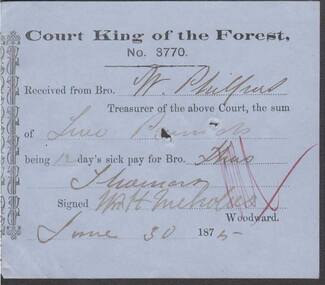 Court King of the Forest,
No. 3770.
Received from Bro. W. Philpus
Treasurer of the above Court, the sum
of Two Pounds
being 12 day's sick pay for Bro. Thos
Thomas
Signed Wm H Nicholas
Woodward.
June 30 1875